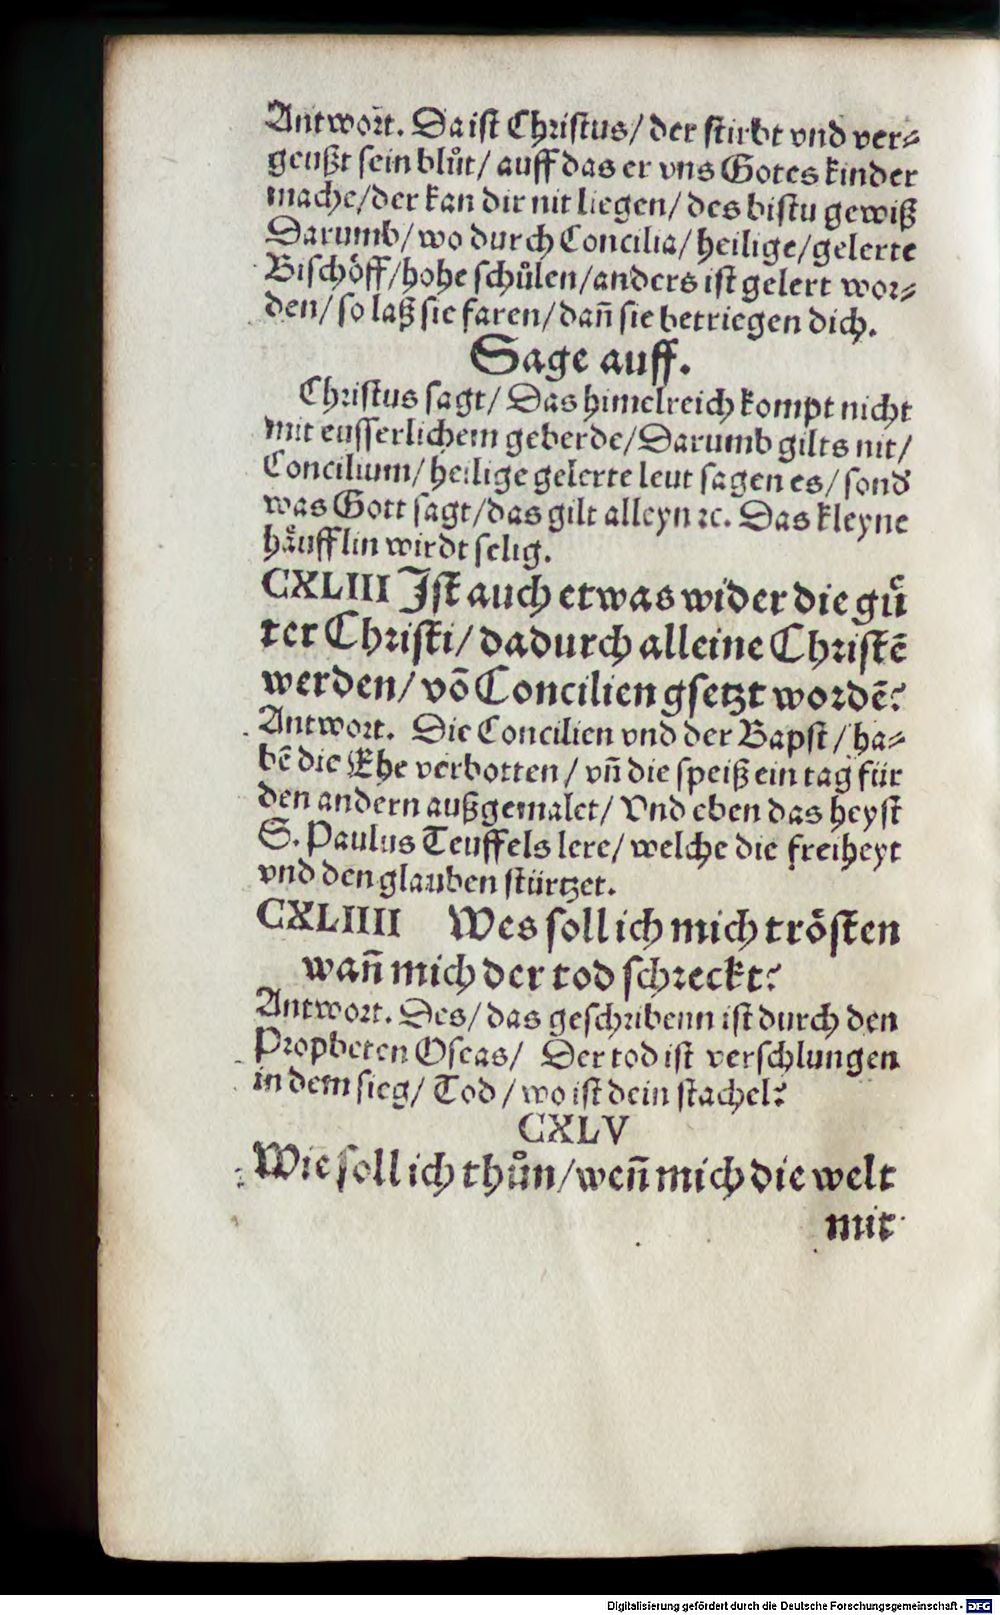 Antwort. Da ist Christus/ der stirbt vnd ver⸗
geußt sein blůt/ auff das er vns Gotes kinder
mache/der kan dir nit liegen/ des bistu gewiß
Darumb/ wo durch Concilia/ heilige/gelerte
Bischöff/hohe schůlen/anders ist gelert wor⸗
den/ so laß sie faren/ dañ sie betriegen dich.
Sage auff.
Christus sagt/ Das himelreich kompt nicht
mit eusserlichem geberde/Darumb gilts nit/
Concilium/ heilige gelerte leut sagen es/ sond̕
was Gott sagt/das gilt alleyn ꝛc. Das kleyne
häufflin wirdt selig.
CXLIII Jst auch etwas wider die gü
ter Christi/ dadurch alleine Christē
werden/ võ Concilien gsetzt wordē?
Antwort. Die Concilien vnd der Bapst/ ha⸗
bē die Ehe verbotten/ vñ die speiß ein tag für
den andern außgemalet/ Vnd eben das heyst
S. Paulus Teuffels lere/ welche die freiheyt
vnd den glauben stürtzet.
CXLIIII Wes soll ich mich trösten
wañ mich der tod schreckt?
Antwort. Des/ das geschribenn ist durch den
Propheten Oseas/ Der tod ist verschlungen
in dem sieg/ Tod/ wo ist dein stachel?
CXLV
Wie soll ich thůn/weñ mich die welt
mit
Digitalisierung gefördert durch die Deutsche Forschungsgemeinschaft - DFG